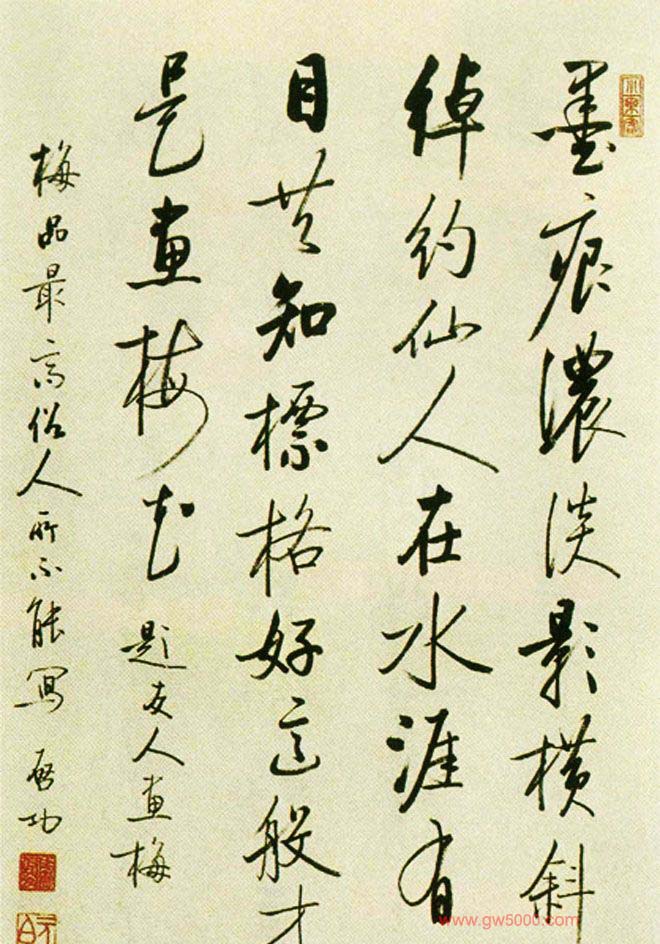 墨痕濃淡影橫斜
綽約仙人在水涯有
目共知標格好這般才
是畫梅花 題友人畫梅
梅品最高俗人所不能寫 啓功
www.gw5000.com